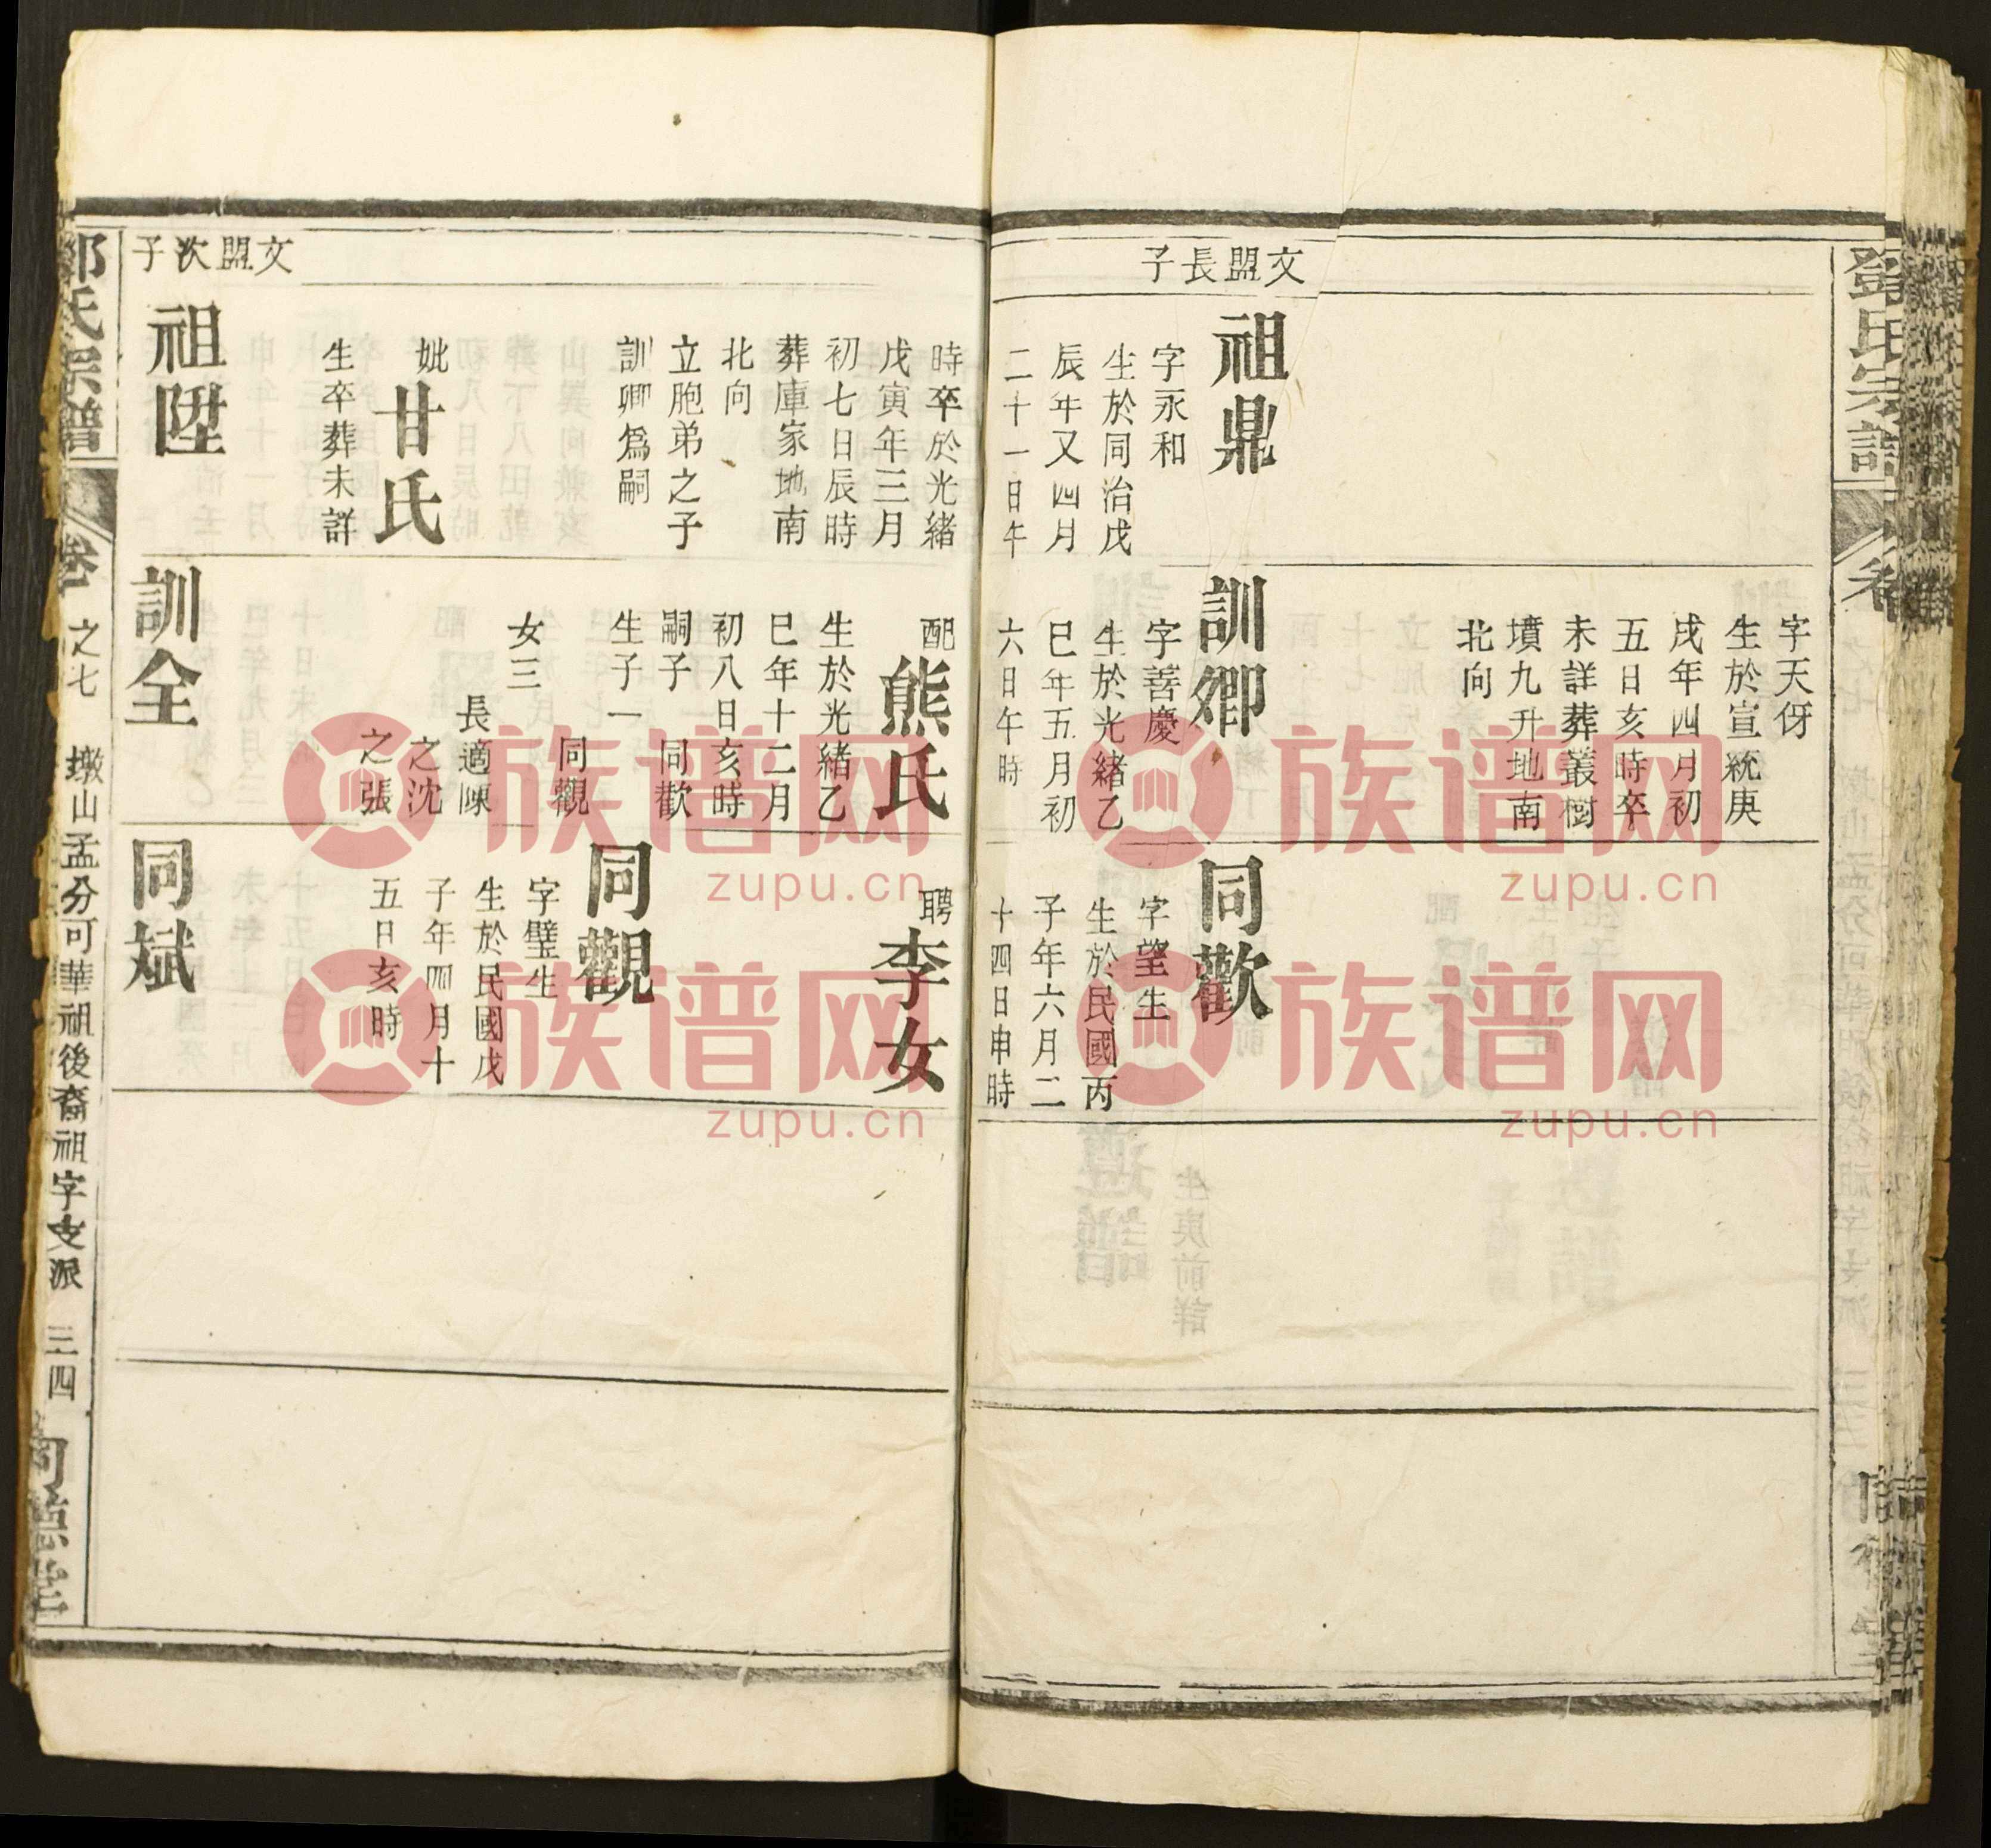 鄧氏宗譜
卷
文盟長子
祖鼎
字永和
生於同治戊
辰年又四月
二十一日午
字天伢
生於宣統庚
戌年四月初
五日亥時卒
未詳葬叢樹
墳九升地南
北向
訓卿
字善慶
生於光緒乙
巳年五月初
六日午時
同歡
字望生
生於民國丙
子年六月二
十四日申時
時卒於光緒
戊寅年三月
初七日辰時
葬庫家地南
北向
立胞弟之子
訓卿爲嗣
妣
甘氏
生卒葬未詳
文盟次子
祖陞
配
熊氏
生於光緒乙
巳年十二月
初八日亥時
嗣子 同歡
生子一 同觀
女三
長適陳
之沈
之張
訓全
聘
李女
同觀
字璧生
生於民國戊
子年四月十
五日亥時
同斌
鄧氏宗譜
卷
之七
墩山孟分可華祖後裔祖字支派
三四
同德堂
族谱网
zupu.cn
族谱网
zupu.cn
族谱网
zupu.cn
族谱网
zupu.cn